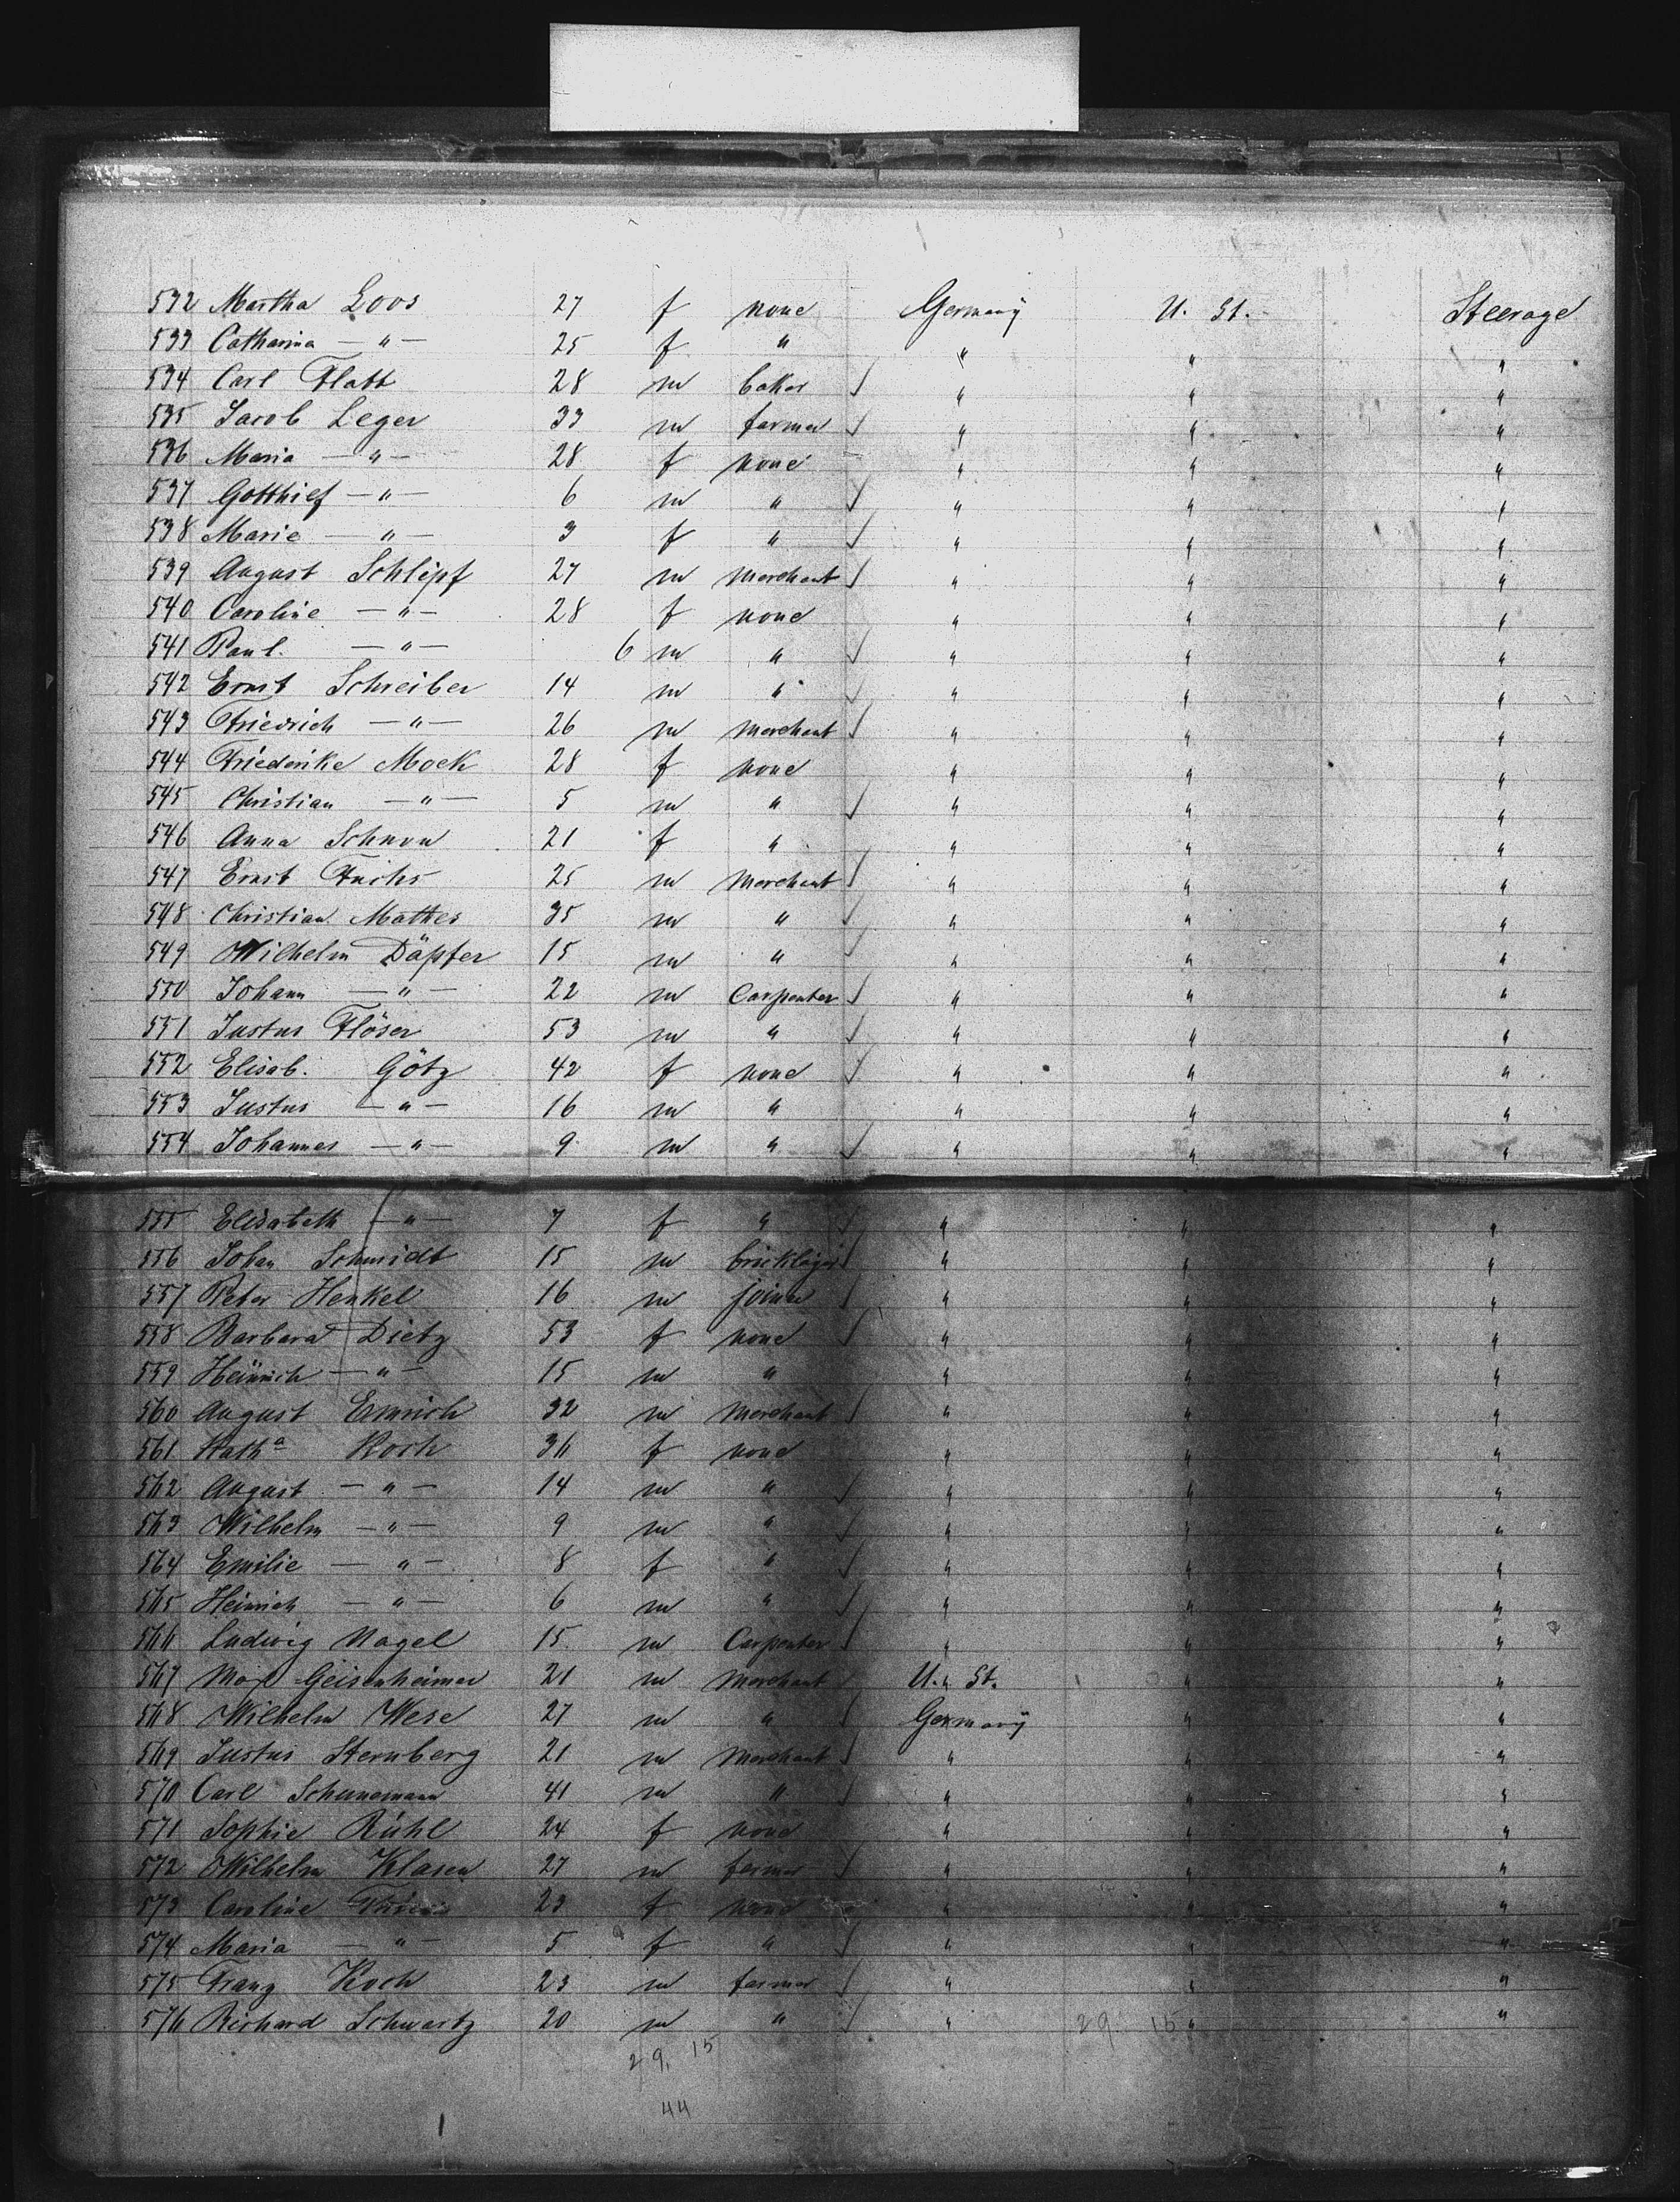 532 Martha Loos 27 f none Germany U. St. Steerage
533 Catharina — " — 25 f " " " "
534 Carl Flatt 28 m baker " " "
535 Jacob Leger 33 m farmer " " "
536 Maria — " — 28 f none " " "
537 Gotthief — " — 6 m " " " "
538 Marie — " — 3 f " " " "
539 August Schlipf 27 m merchant " " "
540 Caroline — " — 28 f none " " "
541 Paul. — " — 6 m " " " "
542 Ernst Schreiber 14 m " " " "
543 Friedrich — " — 26 m merchant " " "
544 Friederike Mock 28 f none " " "
545 Christian — " — 5 m " " " "
546 Anna 21 f " " " "
547 Ernst Fuchs 25 m merchant " " "
548 Christian Mathes 35 m " " " "
549 Wilhelm Däpfer 15 m " " " "
550 Johann — " — 22 m Carpenter " " "
551 Justus Flöser 53 m " " " "
552 Elisab. Götz 42 f none " " "
553 Justus — " — 16 m " " " "
554 Johannes — " — 9 m " " " "
555 Elisabeth — " — 7 f " " " "
556 Johan Schmidt 15 m bricklayer " " "
557 Peter Henkel 16 m joiner " " "
558 Barbara Dietz 53 f none " " "
559 Heinrich — " — 15 m " " " "
560 August Emrich 32 m merchant " " "
561 Katha Koch 36 f none " " "
562 August — " — 14 m " " " "
563 Wilhelm — " — 9 m " " " "
564 Emilie — " — 8 f " " " "
565 Heinrich — " — 6 m " " " "
566 Ludwig Nagel 15 m Carpenter " " "
567 Max Geisenheimer 21 m merchant U. St. " "
568 Wilhelm Wese 27 m " Germany " "
569 Justus Sternberg 21 m merchant " " "
570 Carl Schunemann 41 m " " " "
571 Sophie Rühl 24 f none " " "
572 Wilhelm Klasen 27 m farmer " " "
573 Caroline 23 f none " " "
574 Maria — " — 5 f " " " "
575 Franz Koch 23 m farmer " " "
576 Richard Schwartz 20 m " " " "
29. 15
29. 15
44